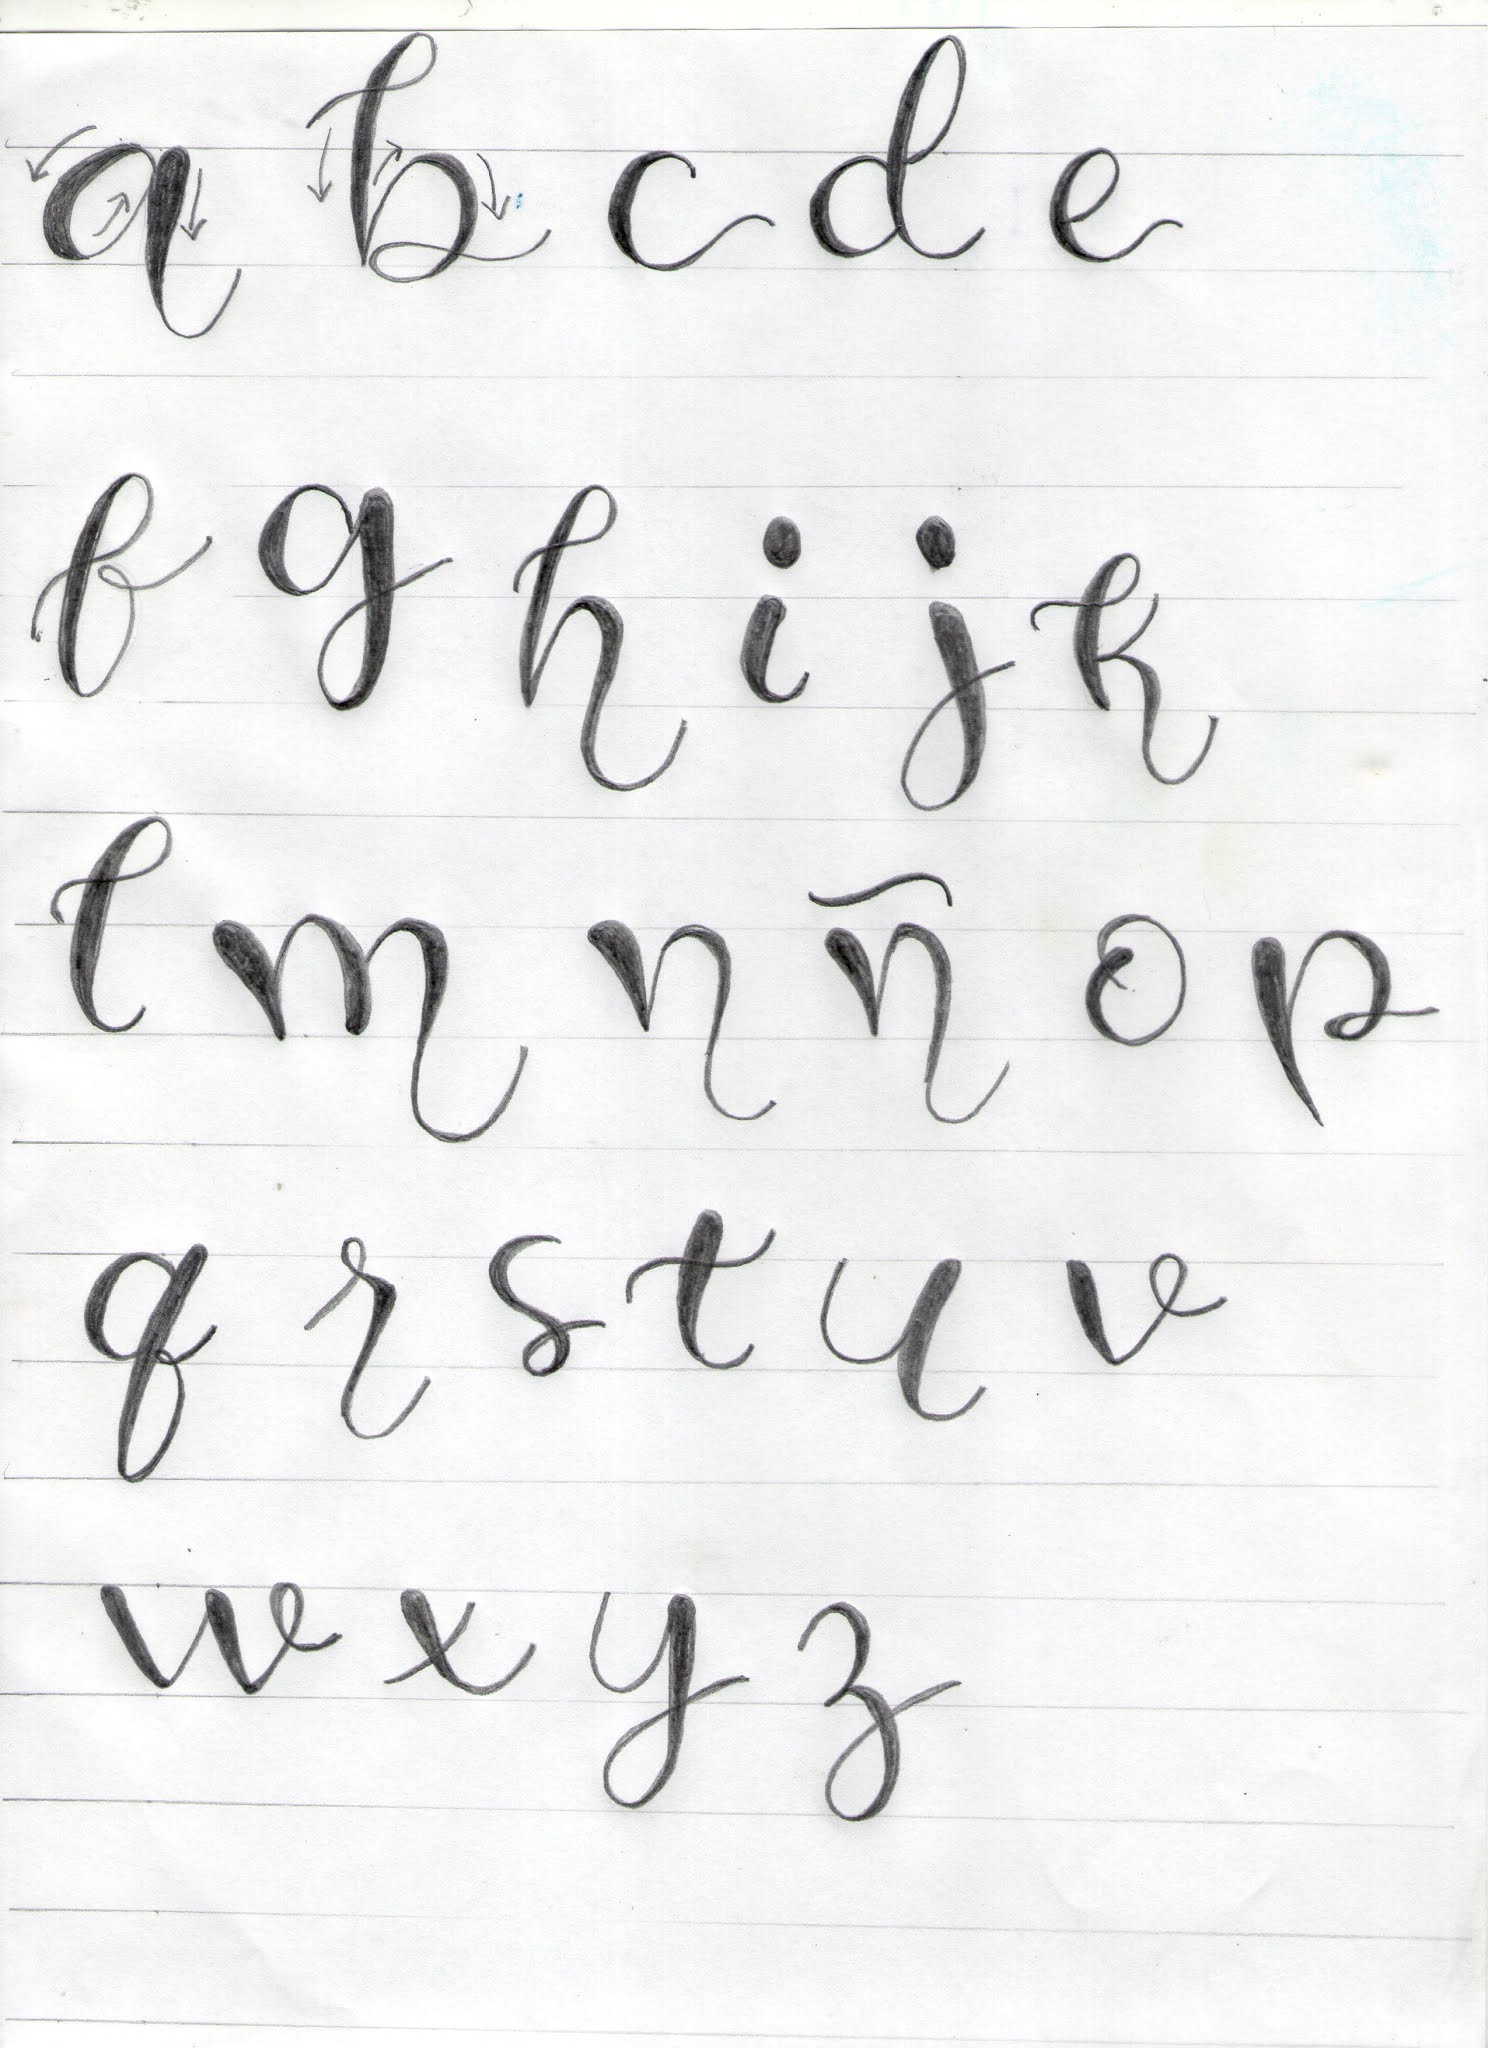 a b c d e
f g h i j k
l m n ñ o p
q r s t u v
w x y z